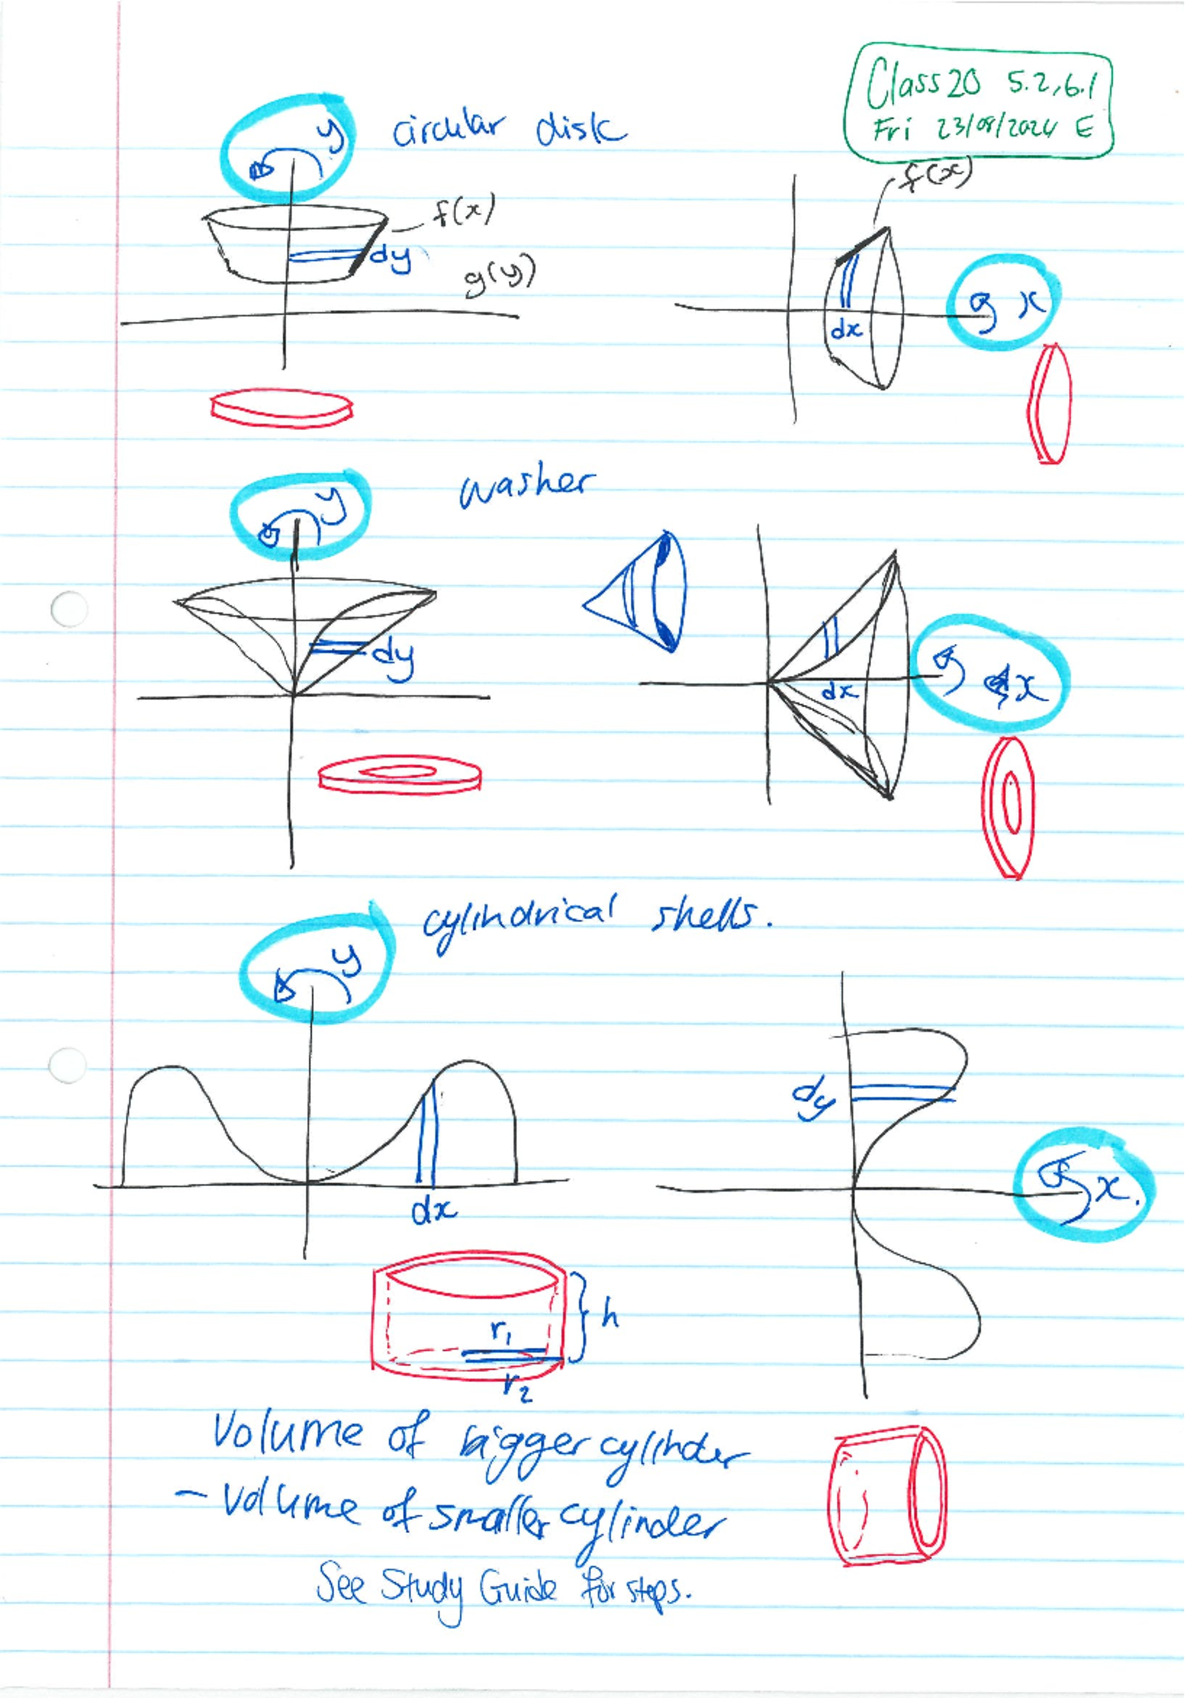 Class20 5.2,6.1
Fri 23/08/2024 E
y
circular disk
f(x)
dy
g(y)
f(x)
dx
x
washer
y
dy
dx
x
cylindrical shells.
y
dx
dy
x.
r1
h
r2
Volume of bigger cylinder
- volume of smaller cylinder
See Study Guide for steps.